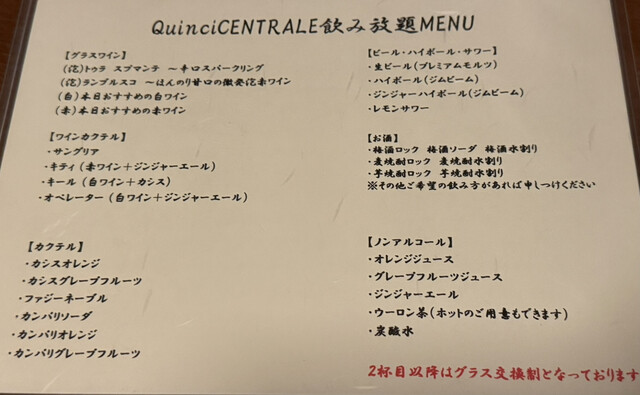 QuinciCENTRALE飲み放題MENU
【グラスワイン】
(泡)トゥラ スプマンテ ～辛口スパークリング
(泡)ランブルスコ ～ほんのり甘口の微発泡赤ワイン
(白)本日おすすめの白ワイン
(赤)本日おすすめの赤ワイン
【ワインカクテル】
・サングリア
・キティ(赤ワイン＋ジンジャーエール)
・キール(白ワイン＋カシス)
・オペレーター(白ワイン＋ジンジャーエール)
【カクテル】
・カシスオレンジ
・カシスグレープフルーツ
・ファジーネーブル
・カンパリソーダ
・カンパリオレンジ
・カンパリグレープフルーツ
【ビール・ハイボール・サワー】
・生ビール(プレミアムモルツ)
・ハイボール(ジムビーム)
・ジンジャーハイボール(ジムビーム)
・レモンサワー
【お酒】
・梅酒ロック 梅酒ソーダ 梅酒水割り
・麦焼酎ロック 麦焼酎水割り
・芋焼酎ロック 芋焼酎水割り
※その他ご希望の飲み方があれば申しつけください
【ノンアルコール】
・オレンジジュース
・グレープフルーツジュース
・ジンジャーエール
・ウーロン茶(ホットのご用意もできます)
・炭酸水
2杯目以降はグラス交換制となっております